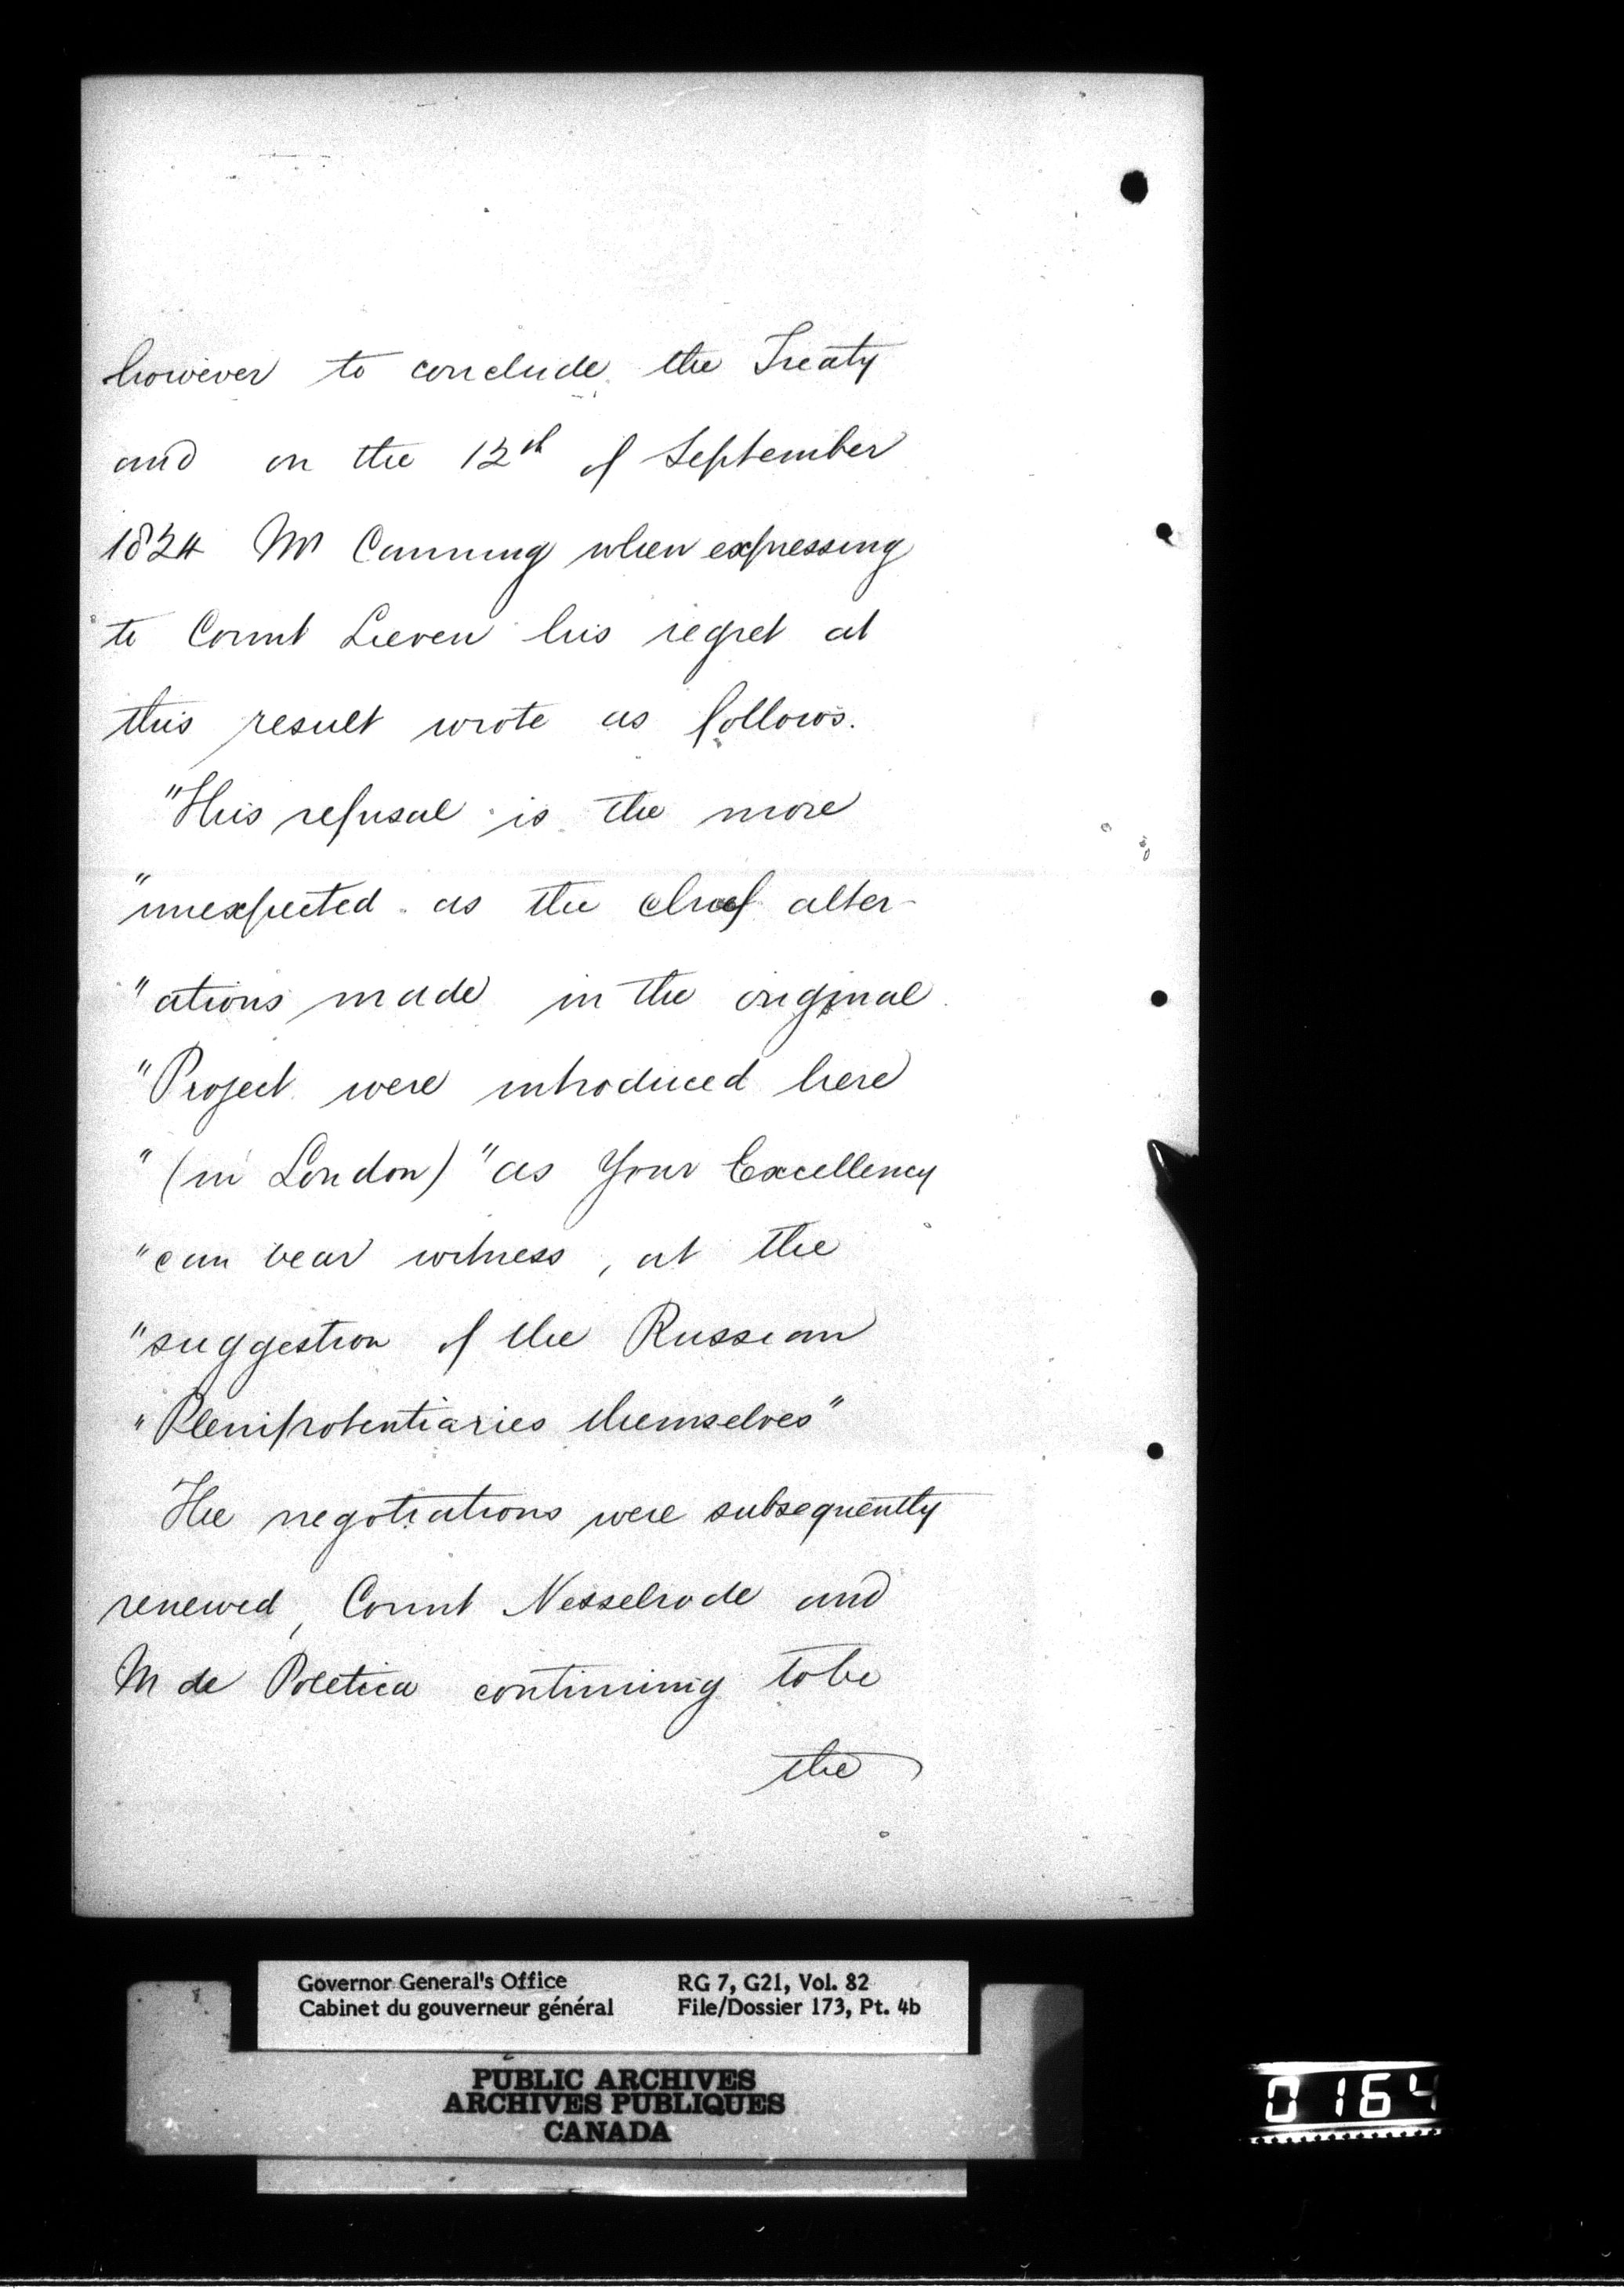 however to conclude the Treaty
and on the 12th of September
1824 Mr Canning when expressing
to Count Lieven his regret at
this result wrote as follows.
"This refusal is the more
"unexpected as the chief alter-
"ations made in the original
"Project were introduced here
"(in London) "as Your Excellency
"can bear witness, at the
"suggestion of the Russian
"Plenipotentiaries themselves"
The negotiations were subsequently
renewed, Count Nesselrode and
M de Poletica continuing to be
the
Governor General's Office
Cabinet du gouverneur général
RG 7, G21, Vol. 82
File/Dossier 173, Pt. 4b
PUBLIC ARCHIVES
ARCHIVES PUBLIQUES
CANADA
0164